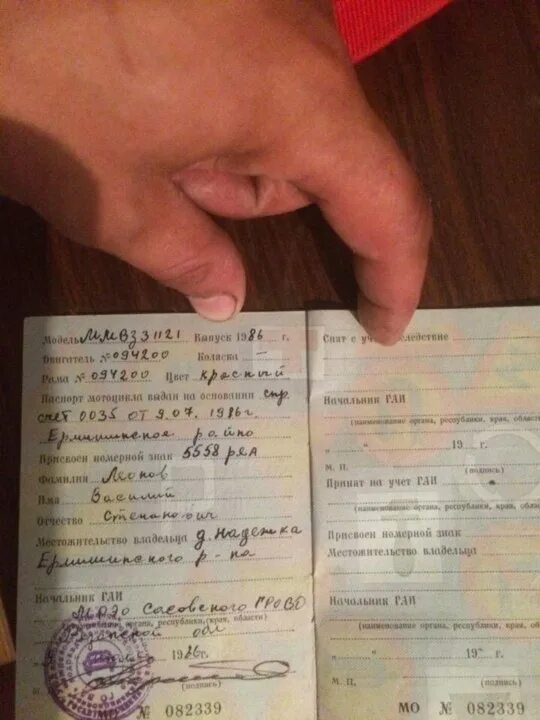 Модель ММВЗ 31121 Выпуск 1986 г.
Двигатель № 094200 Коляска —
Рама № 094200 Цвет красный
Паспорт мотоцикла выдан на основании спр.
счет 0035 от 9.07.1986г.
Ермишинское райпо
Присвоен номерной знак 5558 РЯА
Фамилия Леонов
Имя Василий
Отчество Степанович
Местожительство владельца д. Надежка
Ермишинского р-на
Начальник ГАИ
МРЭО Сасовского ГРОВД
органа, республики, края, области)
обл
1986г.
(подпись)
№ 082339
Снят с учета вследствие
Начальник ГАИ
(наименование органа, республики, края, облас
" " 19 г.
М. П. (подпись)
Принят на учет ГАИ
(наименование органа, республики, края, обла
Присвоен номерной знак
Местожительство владельца
Начальник ГАИ
(наименование органа, республики, края, об
" " 19 г.
М. П. (подпись)
МО № 082339